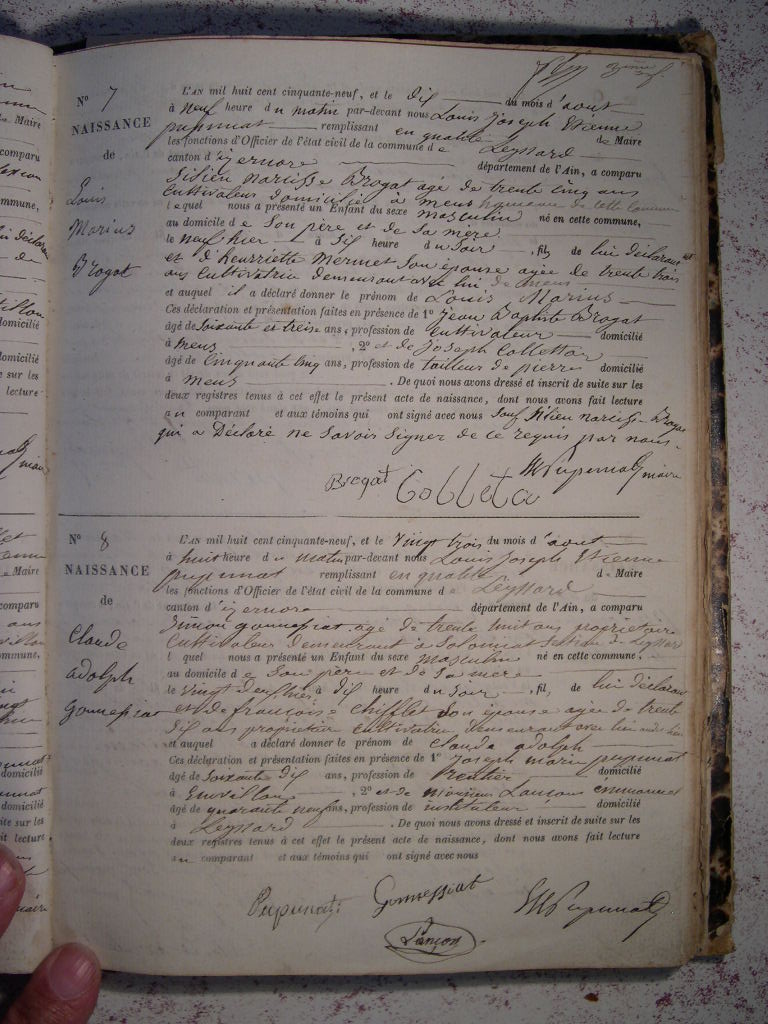 N° 7
NAISSANCE
de
Louis
Marius
Brogat
L'AN mil huit cent cinquante-neuf, et le dix du mois d'août
à neuf heure du matin par-devant nous Louis Joseph Etienne
pupunat remplissant en qualité de Maire
les fonctions d'Officier de l'état civil de la commune de Leyssard
canton d'izernore département de l'Ain, a comparu
Silien narcisse Brogat agé de trente cinq ans
Cultivateur domicilié à mens hameau de cette commune
lequel nous a présenté un Enfant du sexe masculin né en cette commune,
au domicile de Son père et de Sa mère
le neuf hier à Six heure du Soir, fils de lui déclarant
et d'henriette Mermet Son épouse agée de trente trois
ans Cultivatrice demeurant avec lui
et auquel il a déclaré donner le prénom de Louis Marius
Ces déclaration et présentation faites en présence de 1° Jean Baptiste Brogat
âgé de Soixante et treize ans, profession de Cultivateur domicilié
à mens, 2° et de Joseph Collettaz
âgé de Cinquante cinq ans, profession de tailleur de pierre domicilié
à mens. De quoi nous avons dressé et inscrit de suite sur les
deux registres tenus à cet effet le présent acte de naissance, dont nous avons fait lecture
au comparant et aux témoins qui ont signé avec nous Sauf Silien narcisse Brogat
qui a Déclaré ne Savoir Signer de ce requis par nous.
Brogat Colleta Pupunat maire
N° 8
NAISSANCE
de
Claude
adolph
Gonnessiat
L'AN mil huit cent cinquante-neuf, et le Vingt trois du mois d'août
à huit heure du matin par-devant nous Louis Joseph Etienne
pupunat remplissant en qualité de Maire
les fonctions d'Officier de l'état civil de la commune de Leyssard
canton d'izernore département de l'Ain, a comparu
Simon gonnessiat agé de trente huit ans propriétaire
Cultivateur demeurant à Solomiat Section de Leyssard
lequel nous a présenté un Enfant du sexe masculin né en cette commune,
au domicile de Son père et de Sa mère
le Vingt deux hier à dix heure du Soir, fils de lui déclarant
et de françoise Chifflet Son épouse agée de trente
Six ans propriétaire Cultivatrice demeurant avec lui
et auquel a déclaré donner le prénom de Claude adolph
Ces déclaration et présentation faites en présence de 1° Joseph marie pupunat
âgé de Soixante dix ans, profession de Rentier domicilié
à, 2° et de monsieur Lançon emmanuel
âgé de quarante neuf ans, profession de instituteur domicilié
à Leyssard. De quoi nous avons dressé et inscrit de suite sur les
deux registres tenus à cet effet le présent acte de naissance, dont nous avons fait lecture
au comparant et aux témoins qui ont signé avec nous
Pupunat Gonnessiat Pupunat
Lançon